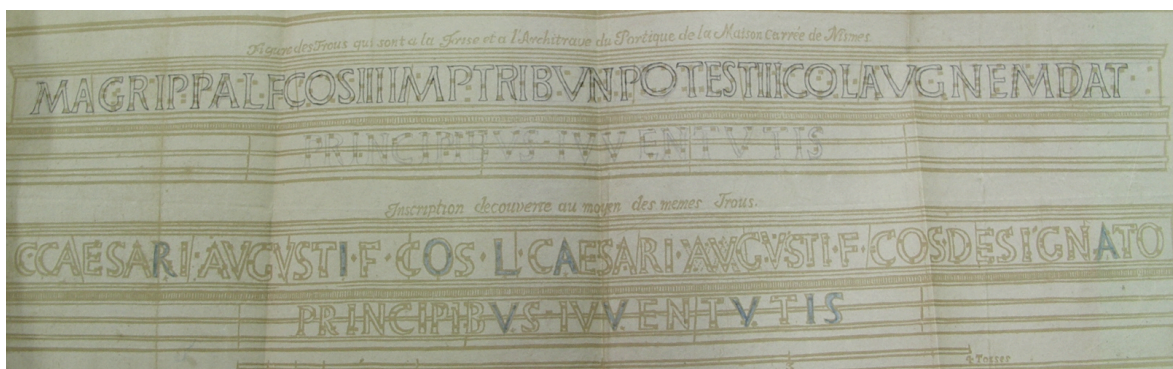 Figure des Trous qui sont a la Frise et a l'Architrave du Portique de la Maison Carrée de Nismes.
MAGRIPPAL·FCOSIIIIMP·TRIBVN·POTESTIIICOLAVGNEMDAT
PRINCIPIBVS·IVVENTVTIS
Inscription decouverte au moyen des memes Trous.
CCAESARI·AVGVSTI·F·COS·L·CAESARI·AVGVSTI·F·COS·DESIGNATO
PRINCIPIBVS·IVVENTVTIS
Toises